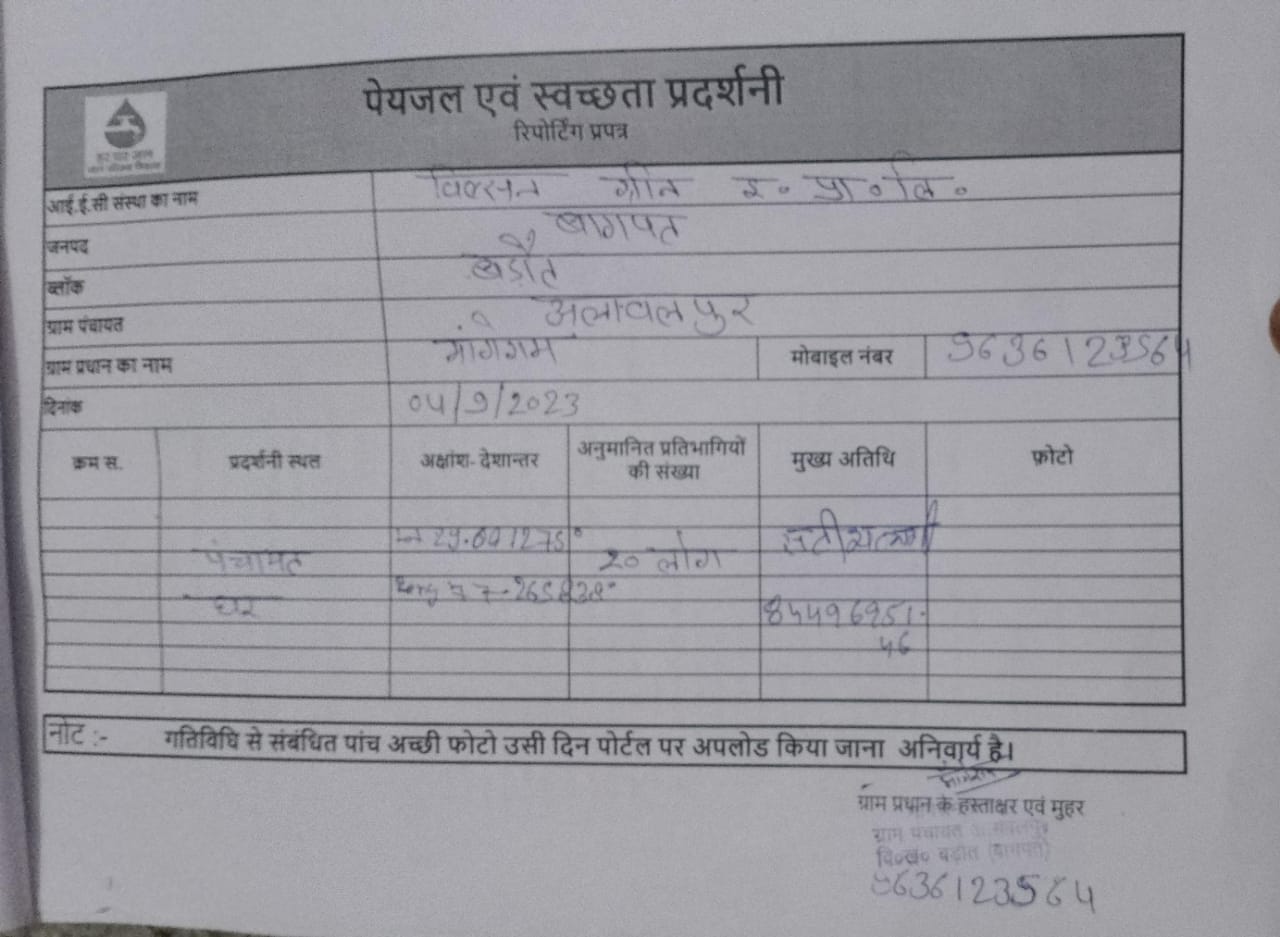 पेयजल एवं स्वच्छता प्रदर्शनी
रिपोर्टिंग प्रपत्र
हर घर जल
आई.ई.सी संस्था का नाम विल्सन ग्रीन इ. प्रा. लि.
जनपद बागपत
ब्लॉक बड़ौत
ग्राम पंचायत अलावलपुर
ग्राम प्रधान का नाम मांगेराम मोबाइल नंबर 9636123564
दिनांक 04/9/2023
क्रम स. प्रदर्शनी स्थल अक्षांश- देशान्तर अनुमानित प्रतिभागियों की संख्या मुख्य अतिथि फ़ोटो
पंचायत 20 लोग
घर
46
नोट :- गतिविधि से संबंधित पांच अच्छी फोटो उसी दिन पोर्टल पर अपलोड किया जाना अनिवार्य है।
मांगेराम
ग्राम प्रधान के हस्ताक्षर एवं मुहर
ग्राम पंचायत अलावलपुर
वि०ख० बड़ौत (बागपत)
9636123564